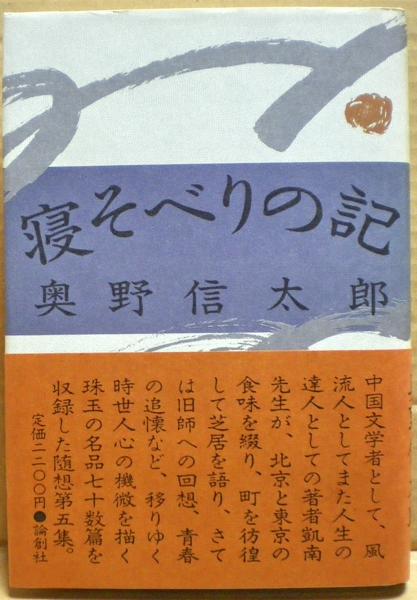 寝そべりの記
奥野信太郎
中国文学者として、風
流人としてまた人生の
達人としての著者凱南
先生が、北京と東京の
食味を綴り、町を彷徨
して芝居を語り、さて
は旧師への回想、青春
の追懐など、移りゆく
時世人心の機微を描く
珠玉の名品七十数篇を
収録した随想第五集。
定価二二〇〇円●論創社